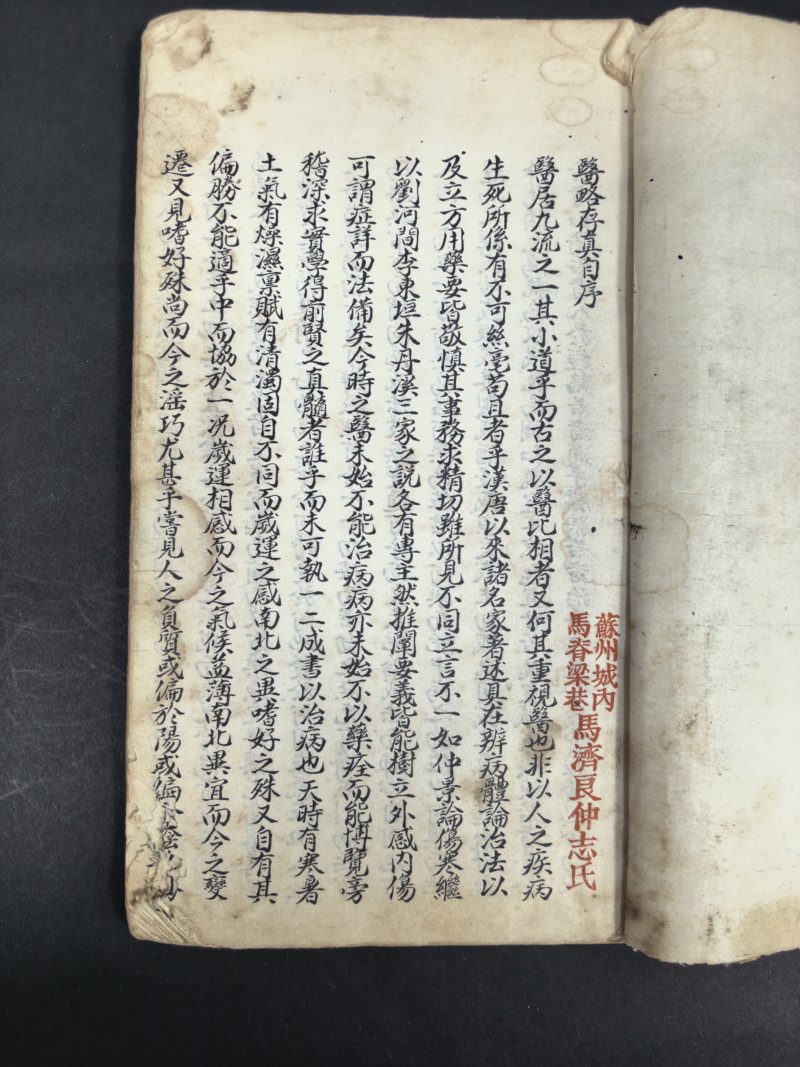 醫略存真自序
蘇州城內
馬脊梁巷
馬濟良仲志氏
醫居九流之一其小道乎而古之以醫比相者又何其重視醫也非以人之疾病
生死所係有不可絲毫苟且者乎漢唐以來諸名家著述具在辨病體論治法以
及立方用藥要皆敬慎其事務求精切雖所見不同立言不一如仲景論傷寒繼
以劉河間李東垣朱丹溪三家之說各有專主然推闡要義皆能樹立外感內傷
可謂症詳而法備矣今時之醫未始不能治病病亦未始不以藥痊而能博覽旁
稽深求實學得前賢之真髓者誰乎而未可執一二成書以治病也天時有寒暑
土氣有燥濕稟賦有清濁固自不同而歲運之感南北之異嗜好之殊又自有其
偏勝不能適乎中而協於一况歲運相感而今之氣候益薄南北異宜而今之變
遷又見嗜好殊尚而今之淫巧尤甚乎嘗見人之負質或偏於陽或偏於陰